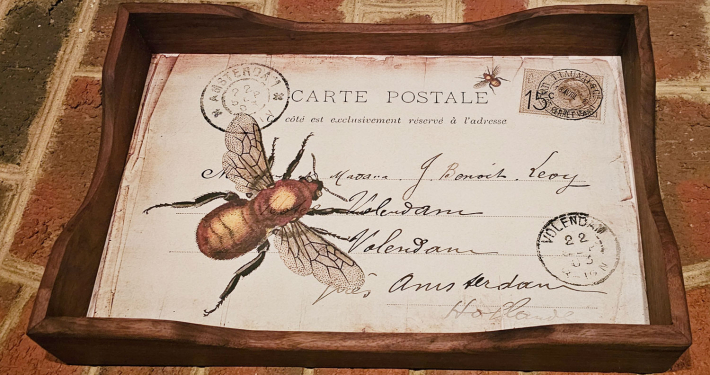 AMSTERDAM
22
CARTE POSTALE
côté est exclusivement réservé à l'adresse
Madame J. Benoit Levy
Volendam
Volendam
près Amsterdam
Hollande
VOLENDAM
22